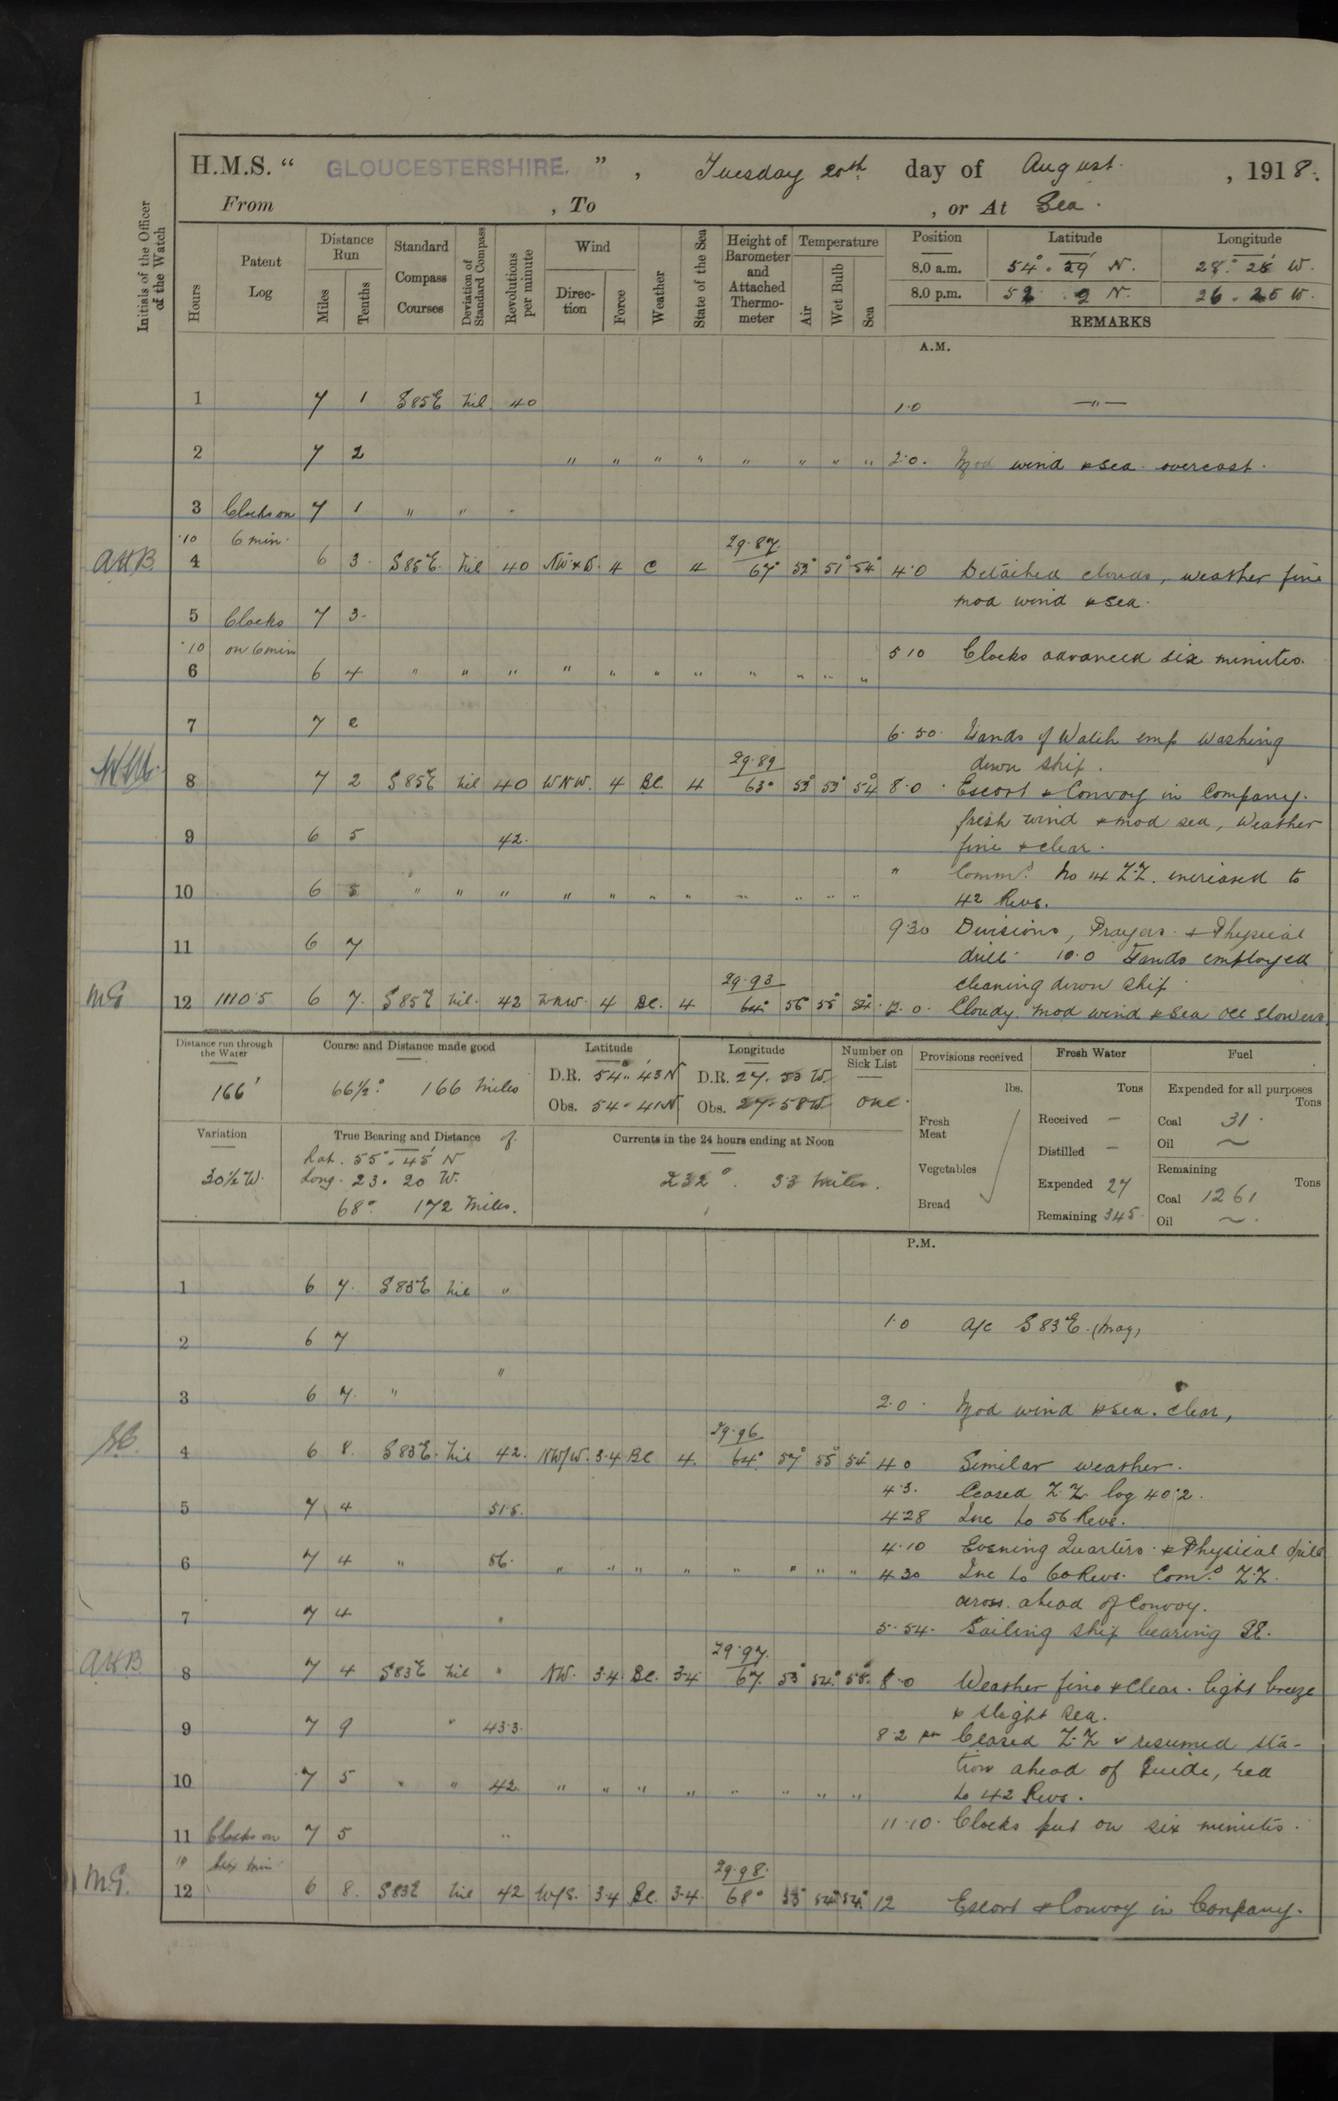 H.M.S. “ GLOUCESTERSHIRE. ” , Tuesday 20th day of August , 1918.
From , To , or At Sea.
Initials of the Officer of the Watch
Hours
Patent Log
Distance Run
Miles
Tenths
Standard Compass Courses
Deviation of Standard Compass
Revolutions per minute
Wind
Direction
Force
Weather
State of the Sea
Height of Barometer and Attached Thermometer
Temperature
Air
Wet Bulb
Sea
Position Latitude Longitude
8.0 a.m. 54°. 29' N. 28°. 28' W.
8.0 p.m. 52 . 2 N. 26 . 25 W.
REMARKS
A.M.
1 7 1 S85E Nil 40 1.0 — " —
2 7 2 " " " " " " " " 2.0. Mod wind & sea overcast.
3 Clocks on 7 1 " " "
.10 6 min. 29.87
AHB 4 6 3. S85E. Nil 40 4 C 4 67° 52° 51° 54° 4.0 Detached clouds, weather fine
mod wind & sea.
5 Clocks 7 3.
.10 on 6 min 5 10 Clocks advanced six minutes.
6 6 4 " " " " " " " " " " "
7 7 2 6.50. Hands of Watch emp washing
down ship.
29.89
8 7 2 S85E Nil 40 WNW. 4 BC. 4 63° 8.0 Escort & Convoy in Company.
fresh wind & mod sea, Weather
9 6 5 42. fine & clear.
" Commd. No 14 Z.Z. increased to
10 6 5 " " " " " " " " " " " 42 Revs.
11 6 7 9.30 Divisions, Prayers & Physical
drill. 10.0 Hands employed
29.93 cleaning down ship.
MG 12 1110.5 6 7. S85E Nil. 42 WNW. 4 BC. 4 64° 56° 55° 54° 12.0. Cloudy mod wind & sea occ showers
Distance run through the Water
166'
Course and Distance made good
66½° 166 miles
Latitude
D.R. 54° 43' N
Obs. 54° 41' N
Longitude
D.R. 27. 53 W.
Obs. 27. 58 W
Number on Sick List
one.
Provisions received
lbs.
Fresh Meat
Vegetables
Bread
Fresh Water
Tons
Received —
Distilled —
Expended 27
Remaining 345
Fuel
Expended for all purposes
Tons
Coal 31.
Oil ~
Remaining
Tons
Coal 1261
Oil ~.
Variation
30½ W.
True Bearing and Distance of
Lat. 55°. 45' N
Long. 23. 20 W.
68° 172 miles.
Currents in the 24 hours ending at Noon
232°. 33 miles.
P.M.
1 6 7. S85E Nil "
1.0 A/c S83E. (mag)
2 6 7 "
3 6 7. " 2.0. Mod wind & sea. clear,
29.96
4 6 8. S83E. Nil 42. NW/W. 3.4 BC 4. 64° 57° 55° 54° 4 0 Similar weather.
4.3. Ceased Z.Z. log 40.2.
5 7 4 51.5. 4.28 Inc to 56 Revs.
4.10 Evening Quarters & Physical drill
6 7 4 " 56. " " " " " " " " 4 30 Inc to 60 Revs. Comd. Z.Z.
across ahead of Convoy.
7 7 4 " 5.54. Sailing ship bearing SE.
29.97.
AHB 8 7 4 S83E Nil " NW. 3.4. BC. 3.4 67. 8.0 Weather fine & clear. light breeze
& slight sea.
9 7 9 " 43.3. 8.2 pm Ceased Z.Z & resumed sta-
tion ahead of Guide, red
10 7 5 " " 42 " " " " " " " " to 42 Revs.
11 Clocks on 7 5 " 11.10. Clocks put on six minutes.
10 Six min 29.98.
M.G. 12 6 8. S83E Nil 42 W/S. 3.4 BC. 3.4. 68° 12 Escort & Convoy in Company.